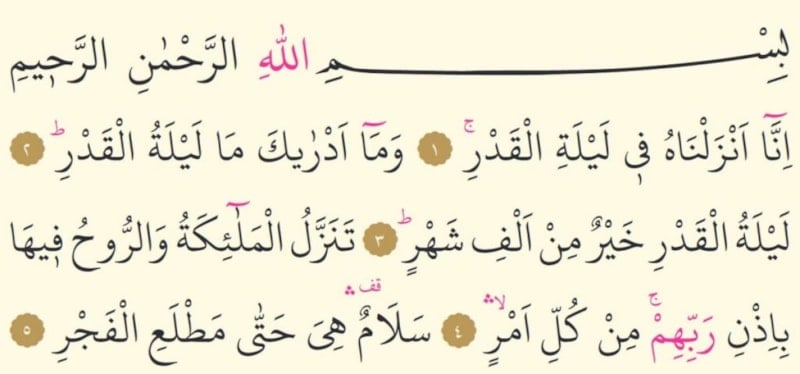 بِسْمِ اللّٰهِ الرَّحْمٰنِ الرَّح۪يمِ
اِنَّٓا اَنْزَلْنَاهُ ف۪ي لَيْلَةِ الْقَدْرِۚ ﴿١﴾ وَمَٓا اَدْرٰيكَ مَا لَيْلَةُ الْقَدْرِۜ ﴿٢﴾
لَيْلَةُ الْقَدْرِ خَيْرٌ مِنْ اَلْفِ شَهْرٍۜ ﴿٣﴾ تَنَزَّلُ الْمَلٰٓئِكَةُ وَالرُّوحُ ف۪يهَا
بِاِذْنِ رَبِّهِمْۚ مِنْ كُلِّ اَمْرٍۙۛ ﴿٤﴾ سَلَامٌ۠ۛ قف هِيَ حَتّٰى مَطْلَعِ الْفَجْرِ ﴿٥﴾